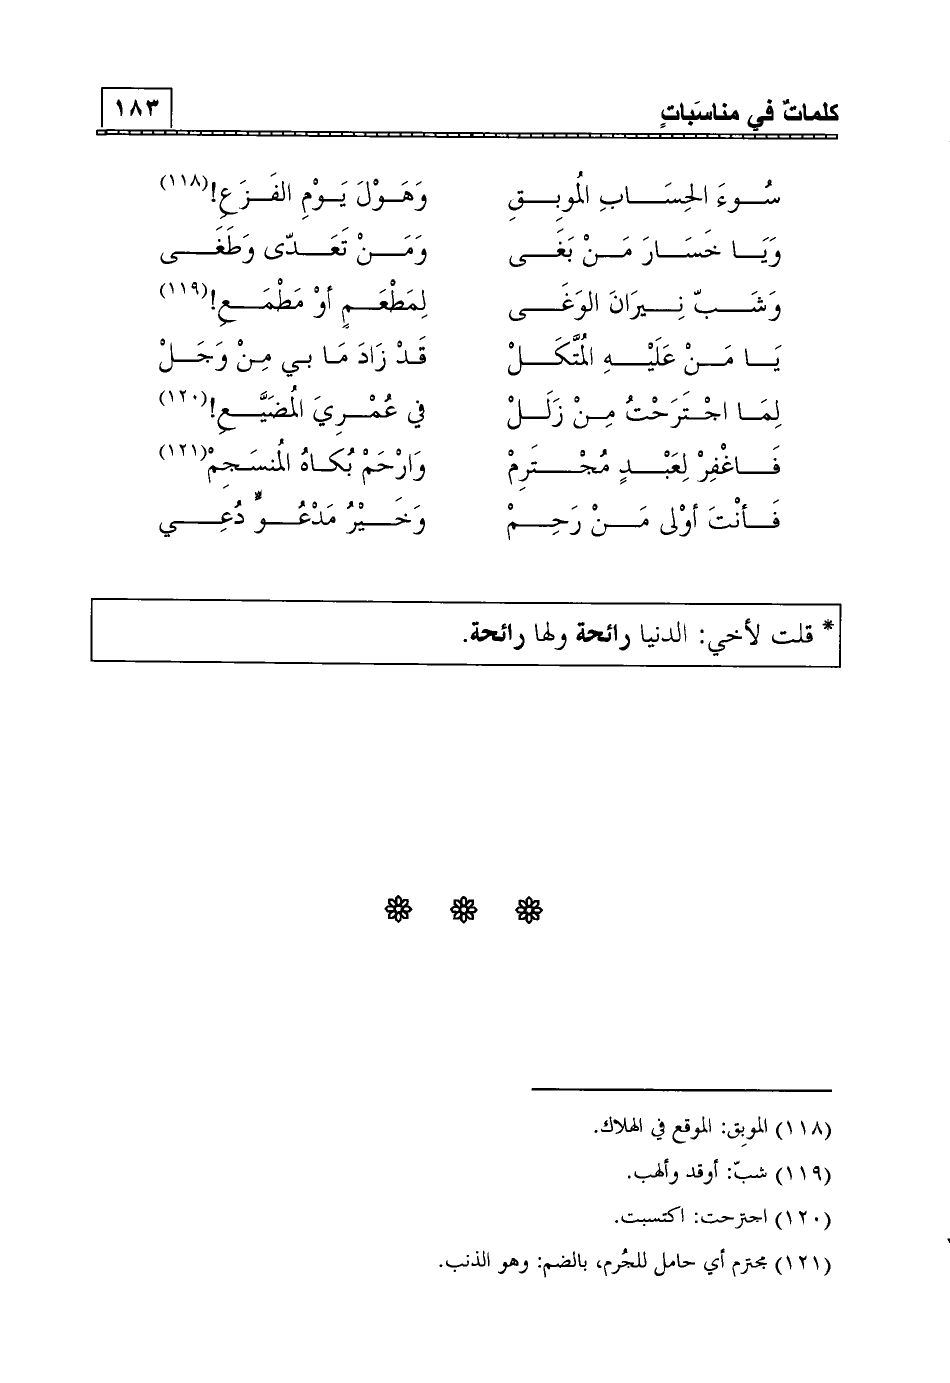 كلماتٌ في مناسَبَاتٍ ١٨٣
سُوءَ الحِسَابِ المُوبِقِ وَهَوْلَ يَوْمِ الفَزَعِ!(١١٨)
وَيَا خَسَارَ مَنْ بَغَى وَمَنْ تَعَدّى وَطَغَى
وَشَبّ نِيرَانَ الوَغَى لِمَطْعَمٍ أوْ مَطْمَعِ!(١١٩)
يَا مَنْ عَلَيْهِ المُتَّكَلْ قَدْ زَادَ مَا بي مِنْ وَجَلْ
لِمَا اجْتَرَحْتُ مِنْ زَلَلْ في عُمْرِيَ المُضَيَّعِ!(١٢٠)
فَاغْفِرْ لِعَبْدٍ مُجْتَرِمْ وَارْحَمْ بُكَاهُ المُنسَجِمْ(١٢١)
فَأنْتَ أوْلى مَنْ رَحِمْ وَخَيْرُ مَدْعُوٍّ دُعِي
* قلت لأخي: الدنيا رائحة ولها رائحة.
(١١٨) الموبِق: الموقع في الهلاك.
(١١٩) شبّ: أوقد وألهب.
(١٢٠) اجترحت: اكتسبت.
(١٢١) مجترم أي حامل للجُرم، بالضم: وهو الذنب.